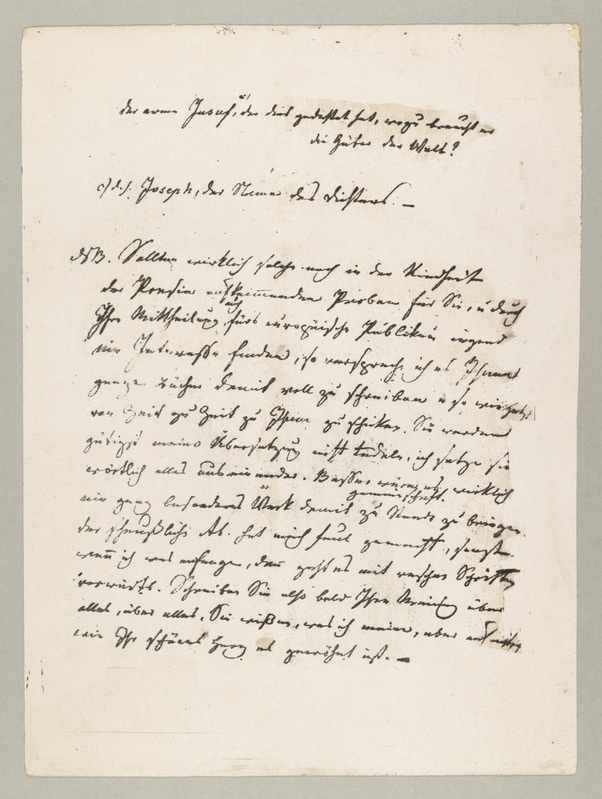 der arme Jusuf, c) der dies gedichtet hat, wozu braucht er
die Güter der Welt?
c) d. h. Joseph, der Name des Dichters. —
Sollten wirklich solche noch in der Kindheit
der Poesie Proben für Sie, u durch
Ihre Mittheilung auch fürs europäische Publikum irgend
ein Interesse finden, so verspreche ich es Ihnen
ganze Bücher damit voll zu schreiben u so
von Zeit zu Zeit zu Ihnen zu schicken. Sie werden
gütigst meine Übersetzung nicht tadeln, ich setze sie
wörtlich alles auseinander. Besser wäre es, wirklich
gemeinschaftl.
ein ganz besonderes Werk damit zu Stande zu bringen.
der scheußliche Ab. hat mich faul gemacht, sonst
wenn ich was anfange, dann geht es mit raschen Schritten
vorwärts. Schreiben Sie also bald Ihre Meinung über
alles, über alles, Sie wissen, was ich meine, aber
wie Ihr schönes Herz es gewöhnt ist. —